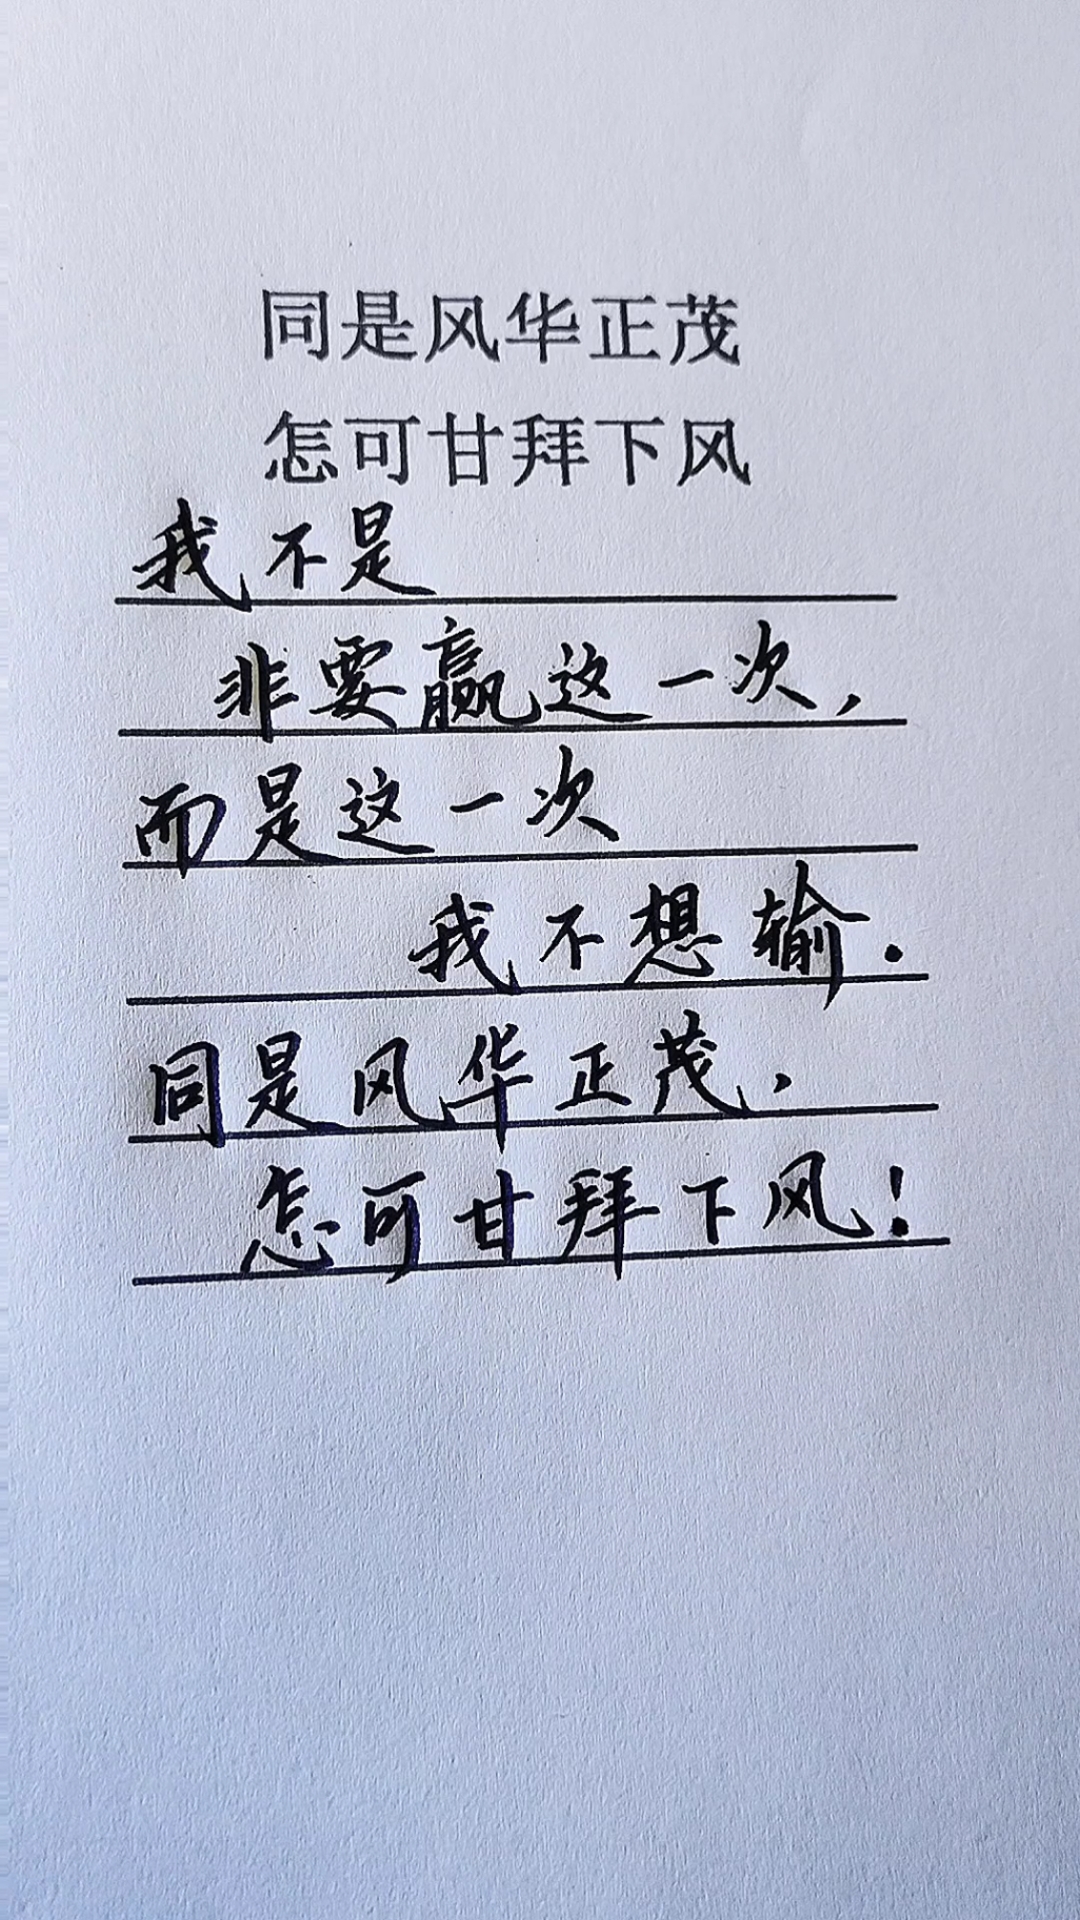 同是风华正茂
怎可甘拜下风
我不是
非要赢这一次，
而是这一次
我不想输.
同是风华正茂，
怎可甘拜下风！